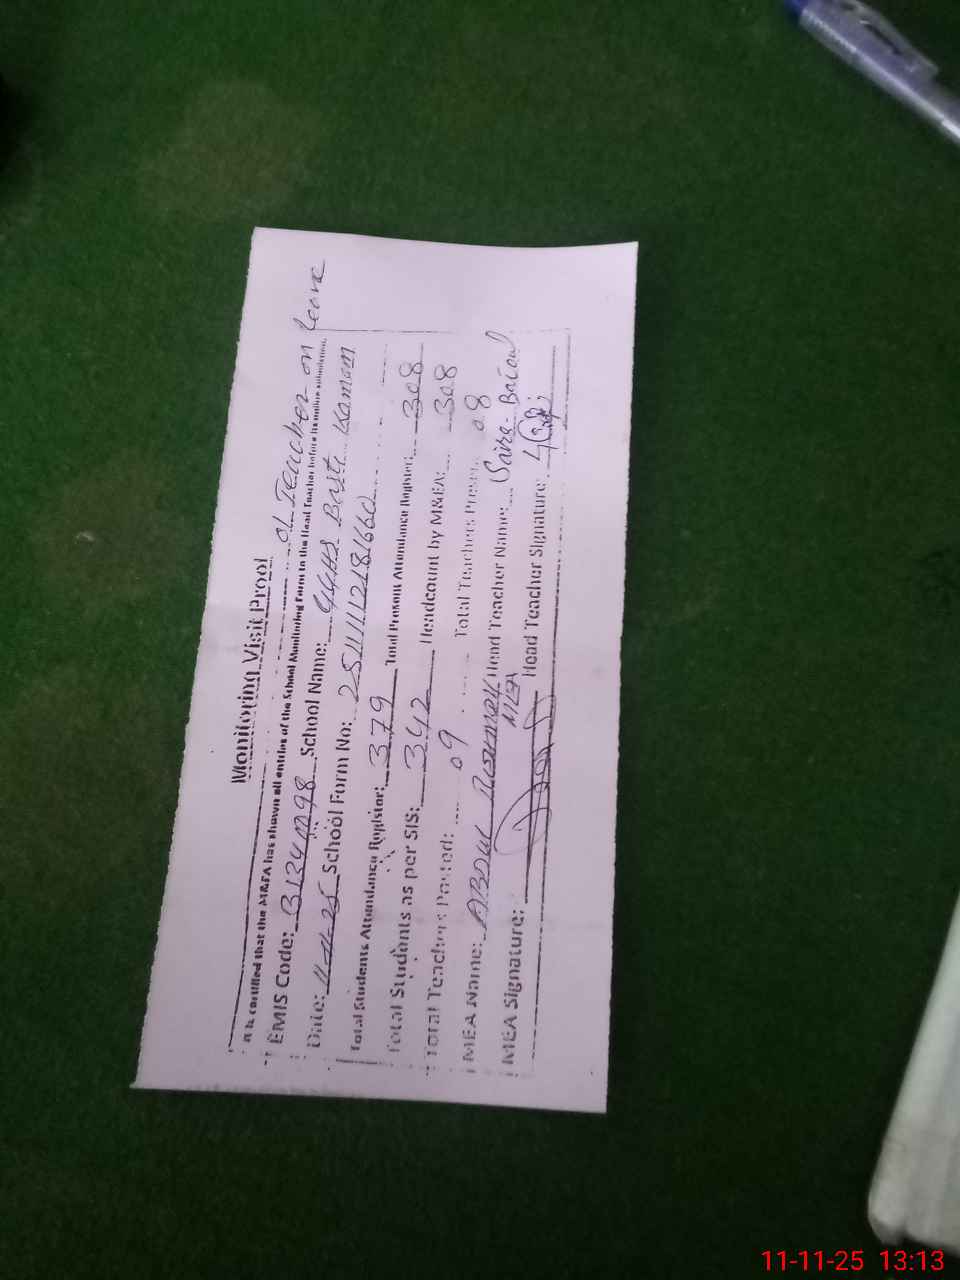 Monitoring Visit Proof
01 Teacher on leave
It is certified that the M&EA has shown all entries of the School Monitoring Form to the Head Teacher before its online submission.
EMIS Code: 3124 School Name: GGHS. Basti
Date: 11-11-25 School Form No:
Total Students Attendance Register: 379 Total Present Attendance Register: 308
Total Students as per SIS: 342 Headcount by M&EA: 308
Total Teachers Posted: 09 Total Teachers Present: 08
MEA Name: ABDUL MEA Head Teacher Name: Saira Batool
MEA Signature: Head Teacher Signature:
11-11-25 13:13